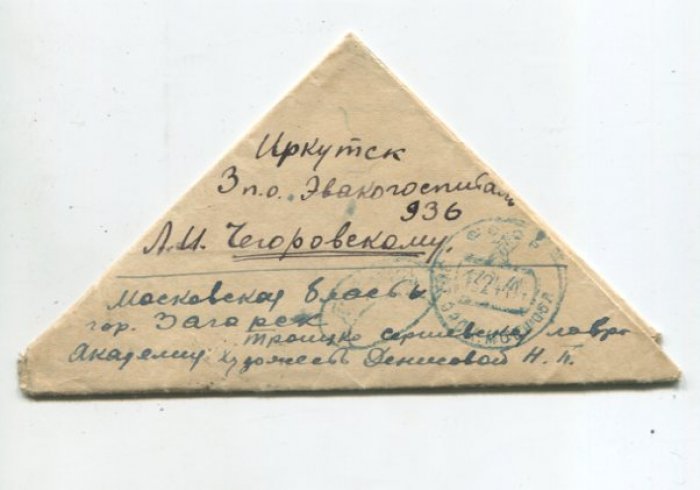 Иркутск
3 п.о. Эвакогоспиталь
936
Л.И. Чегоровскому.
Московская власть
гор. Загорск
троицко сергиевская лавра
Академия художеств Денисовой Н. П.
СССР